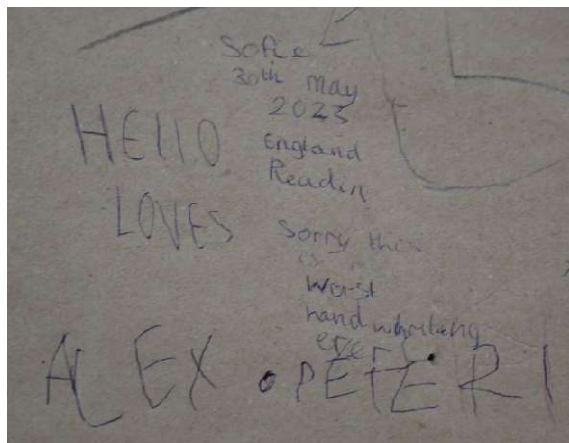 Sofie
30th May
2023
England
Readin
HELLO
LOVES
Sorry this
is
worst
handwriting
ever
ALEX • PETERI